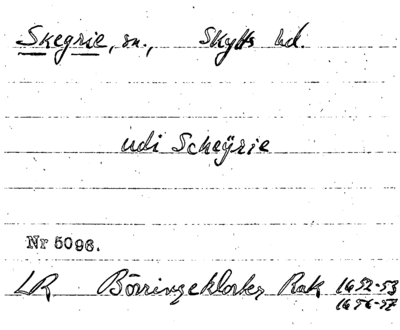 Skegrie, sn., Skytts hd.
udi Scheÿrie
Nr 5096.
LR Börringeklosters Rsk 1652-53
1656-57